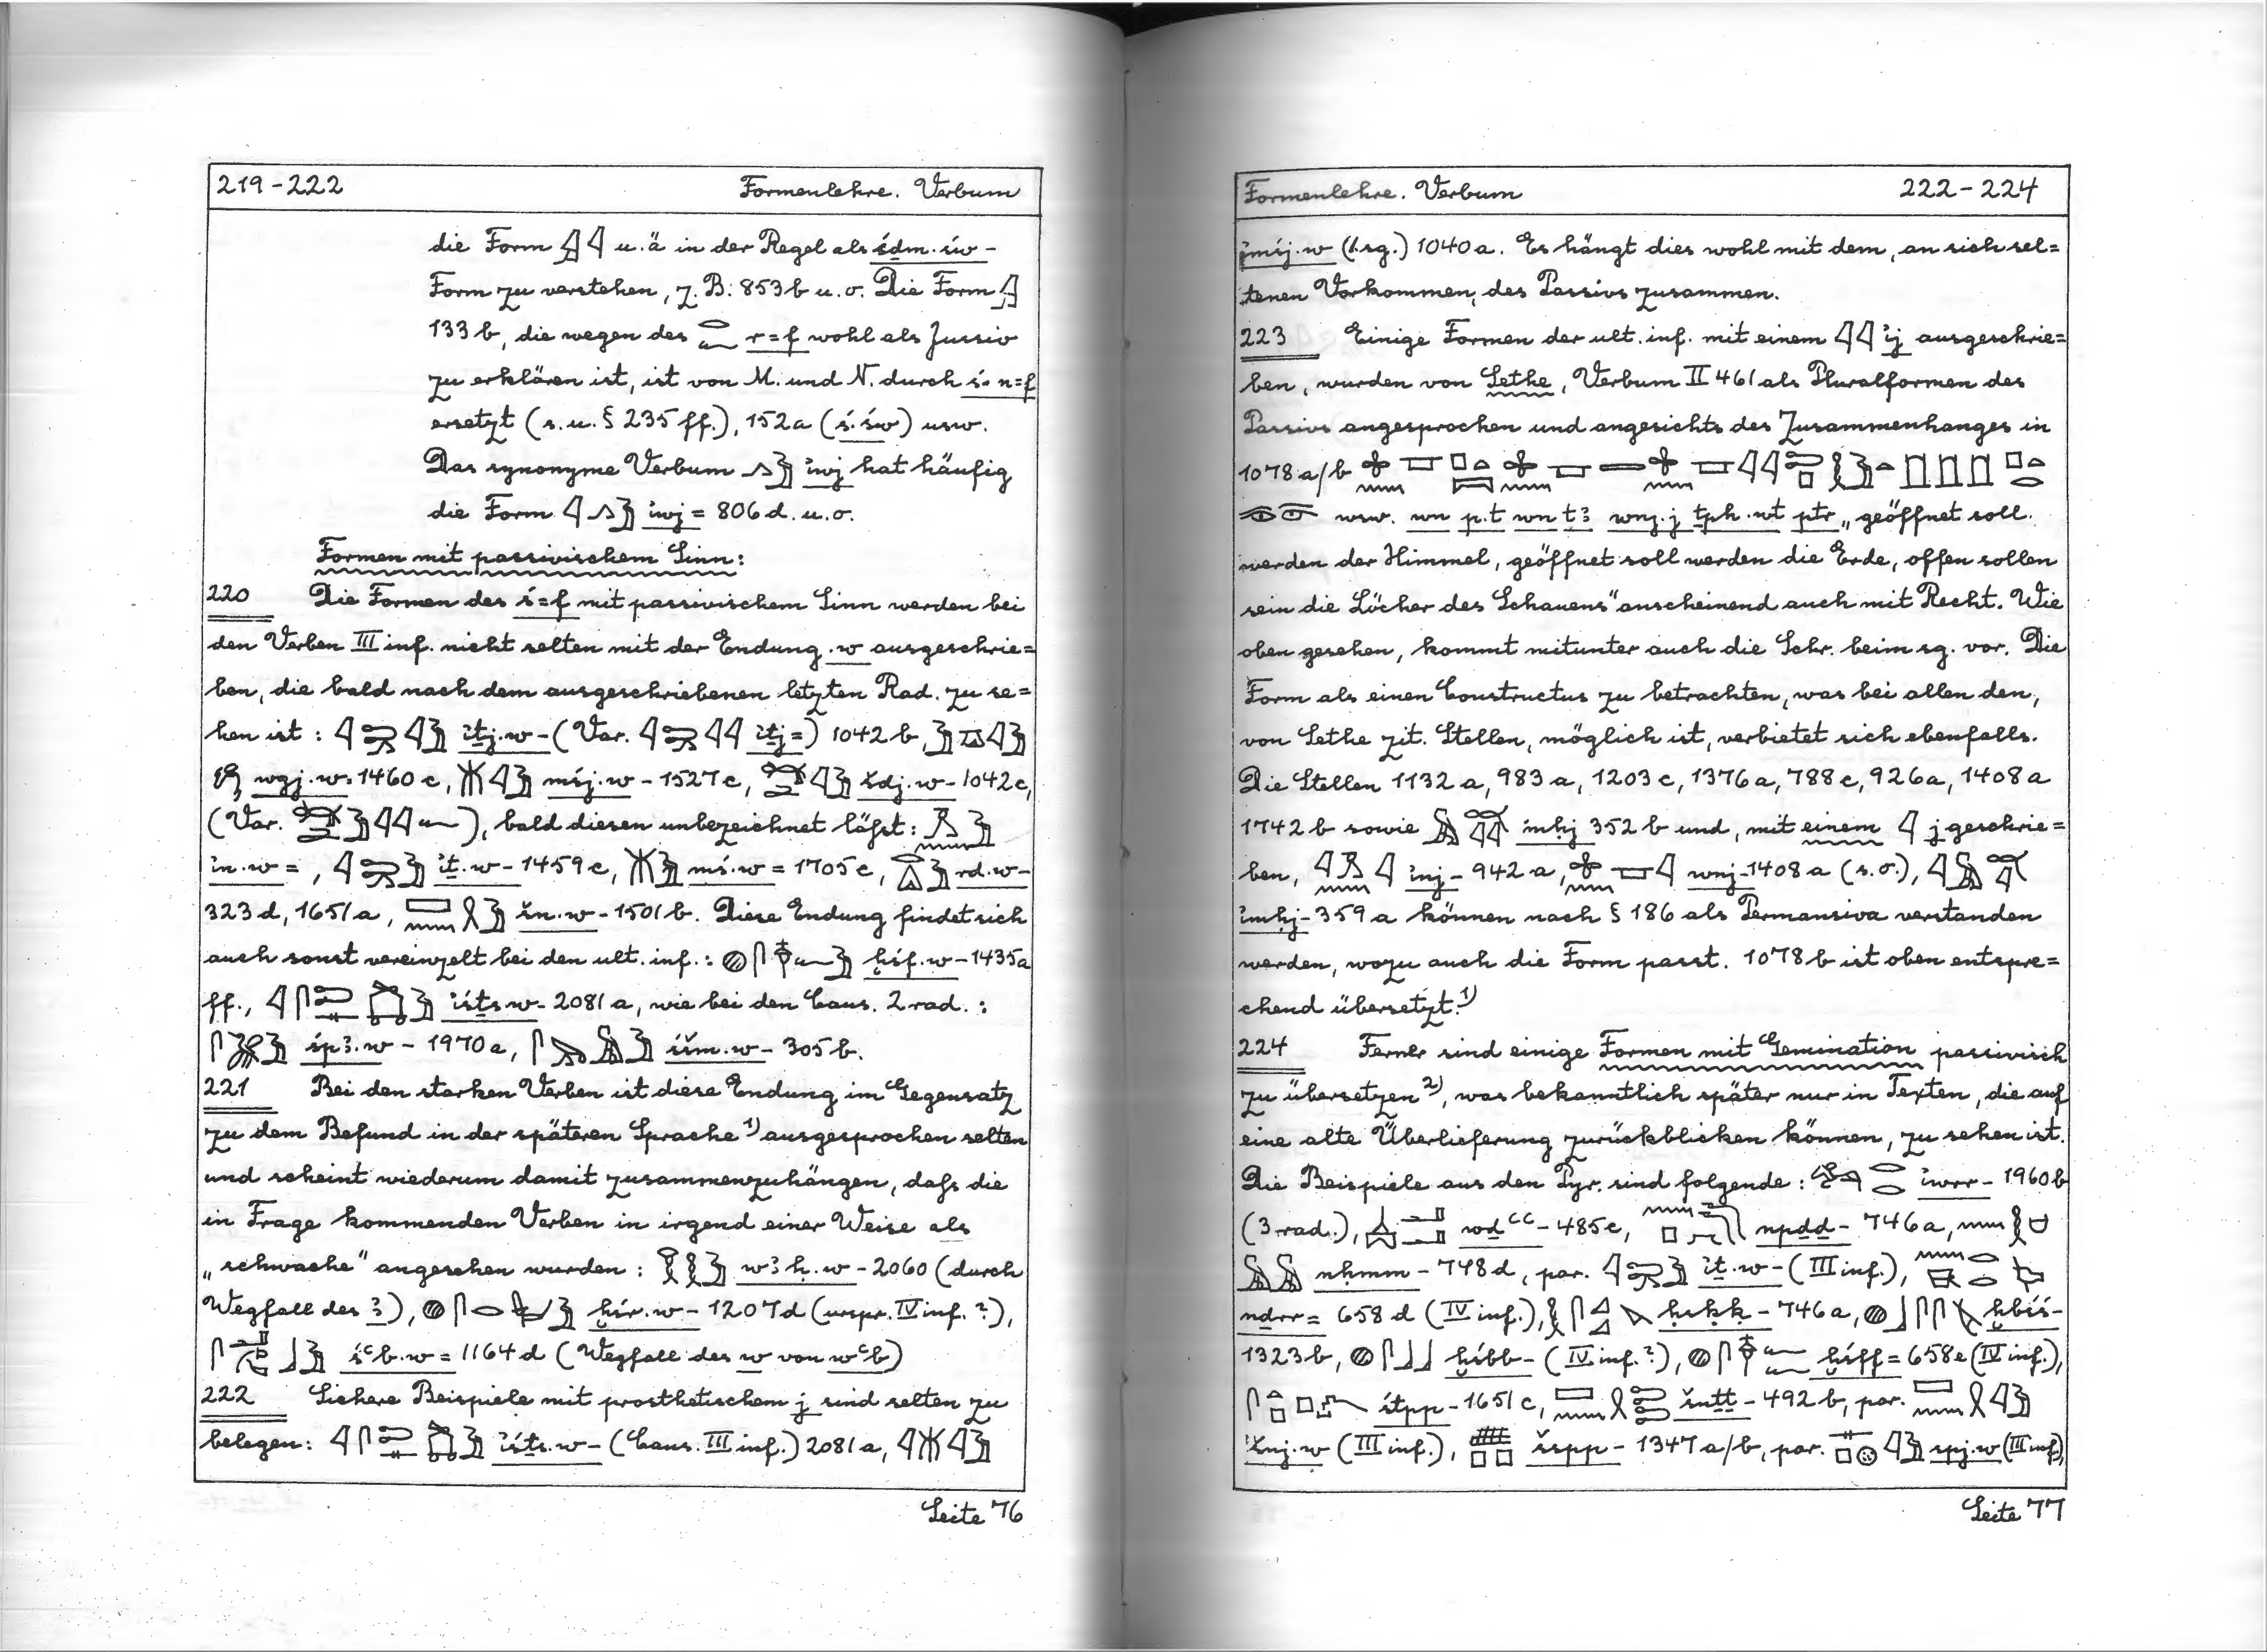 219-222 Formenlehre. Verbum
die Form 𓇍 𓇋 u. ä in der Regel als śḏm.św-
Form zu verstehen, z. B: 853 b u. o. Die Form 𓇍
133 b, die wegen des 𓂋𓆑 r=f wohl als Jussiv
zu erklären ist, ist von M. und N. durch ś. n=f
ersetzt (s. u. § 235 ff.), 152a (ś.św) usw.
Das synonyme Verbum 𓂻𓅱 ı͗wj hat häufig
die Form 𓇋𓂻𓅱 ı͗wj = 806 d. u. o.
Formen mit passivischem Sinn:
220 Die Formen des ś=f mit passivischem Sinn werden bei
den Verben III inf. nicht selten mit der Endung .w ausgeschrie=
ben, die bald nach dem ausgeschriebenen letzten Rad. zu se=
hen ist : ı͗ṯj.w - (Var. ı͗ṯj =) 1042 b,
wgj.w = 1460 c, mśj.w - 1527 c, šdj.w - 1042 c,
(Var. ), bald diesen unbezeichnet läßt:
ı͗n.w = , ı͗ṯ.w - 1459 c, mś.w = 1705 c, rd.w -
323 d, 1651 a, šn.w - 1501 b. Diese Endung findet sich
auch sonst vereinzelt bei den ult. inf. : ḫśf.w - 1435a
ff., ı͗śṯs.w - 2081 a, wie bei den Caus. 2 rad. :
śpꜣ.w - 1970 a, śšm.w - 305 b.
221 Bei den starken Verben ist diese Endung im Gegensatz
zu dem Befund in der späteren Sprache 1) ausgesprochen selten
und scheint wiederum damit zusammenzuhängen, daß die
in Frage kommenden Verben in irgend einer Weise als
„schwache" angesehen wurden : wꜣḥ.w - 2060 (durch
Wegfall des ꜣ), ḫśr.w - 1207 d (urspr. IV inf. ?),
śꜥb.w = 1164 d (Wegfall des w von wꜥb)
222 Sichere Beispiele mit prosthetischem j sind selten zu
belegen: ı͗śṯs.w - (Caus. III inf.) 2081 a,
Seite 76
Formenlehre. Verbum 222-224
jmśj.w (1. sg.) 1040 a. Es hängt dies wohl mit dem, an sich sel=
tenen Vorkommen, des Passivs zusammen.
223 Einige Formen der ult. inf. mit einem 𓇋𓇋 ı͗j ausgeschrie=
ben, wurden von Sethe, Verbum II 461 als Pluralformen des
Passivs angesprochen und angesichts des Zusammenhanges in
1078 a/b
usw. wn p.t wn tꜣ wnj.j ṯpḥ.wt ptr „geöffnet soll.
werden der Himmel, geöffnet soll werden die Erde, offen sollen
sein die Löcher des Schauens" anscheinend auch mit Recht. Wie
oben gesehen, kommt mitunter auch die Schr. beim sg. vor. Die
Form als einen Constructus zu betrachten, was bei allen den,
von Sethe zit. Stellen, möglich ist, verbietet sich ebenfalls.
Die Stellen 1132 a, 983 a, 1203 c, 1376 a, 788 c, 926a, 1408 a
1742 b sowie ı͗mḥj 352 b und, mit einem 𓇋 j geschrie=
ben, ı͗nj - 942 a, wnj - 1408 a (s. o.),
ı͗mḥj - 359 a können nach § 186 als Permansiva verstanden
werden, wozu auch die Form passt. 1078 b ist oben entspre=
chend übersetzt. 1)
224 Ferner sind einige Formen mit Gemination passivisch
zu übersetzen 2), was bekanntlich später nur in Texten, die auf
eine alte Überlieferung zurückblicken können, zu sehen ist.
Die Beispiele aus den Pyr. sind folgende : ı͗wrr - 1960 b
(3 rad.), wdꜥꜥ - 485 c, npdd - 746 a,
nḥmm - 748 d, par. ı͗ṯ.w - (III inf.),
nḏrr = 658 d (IV inf.), ḥsḳḳ - 746 a, ḫbśś -
1323 b, ḫśbb - (IV inf. ?), ḫśff = 658 e (IV inf.),
śtpp - 1651 c, šnṯṯ - 492 b, par.
ı͗šnj.w (III inf.), šspp - 1347 a/b, par. spj.w (III inf),
Seite 77